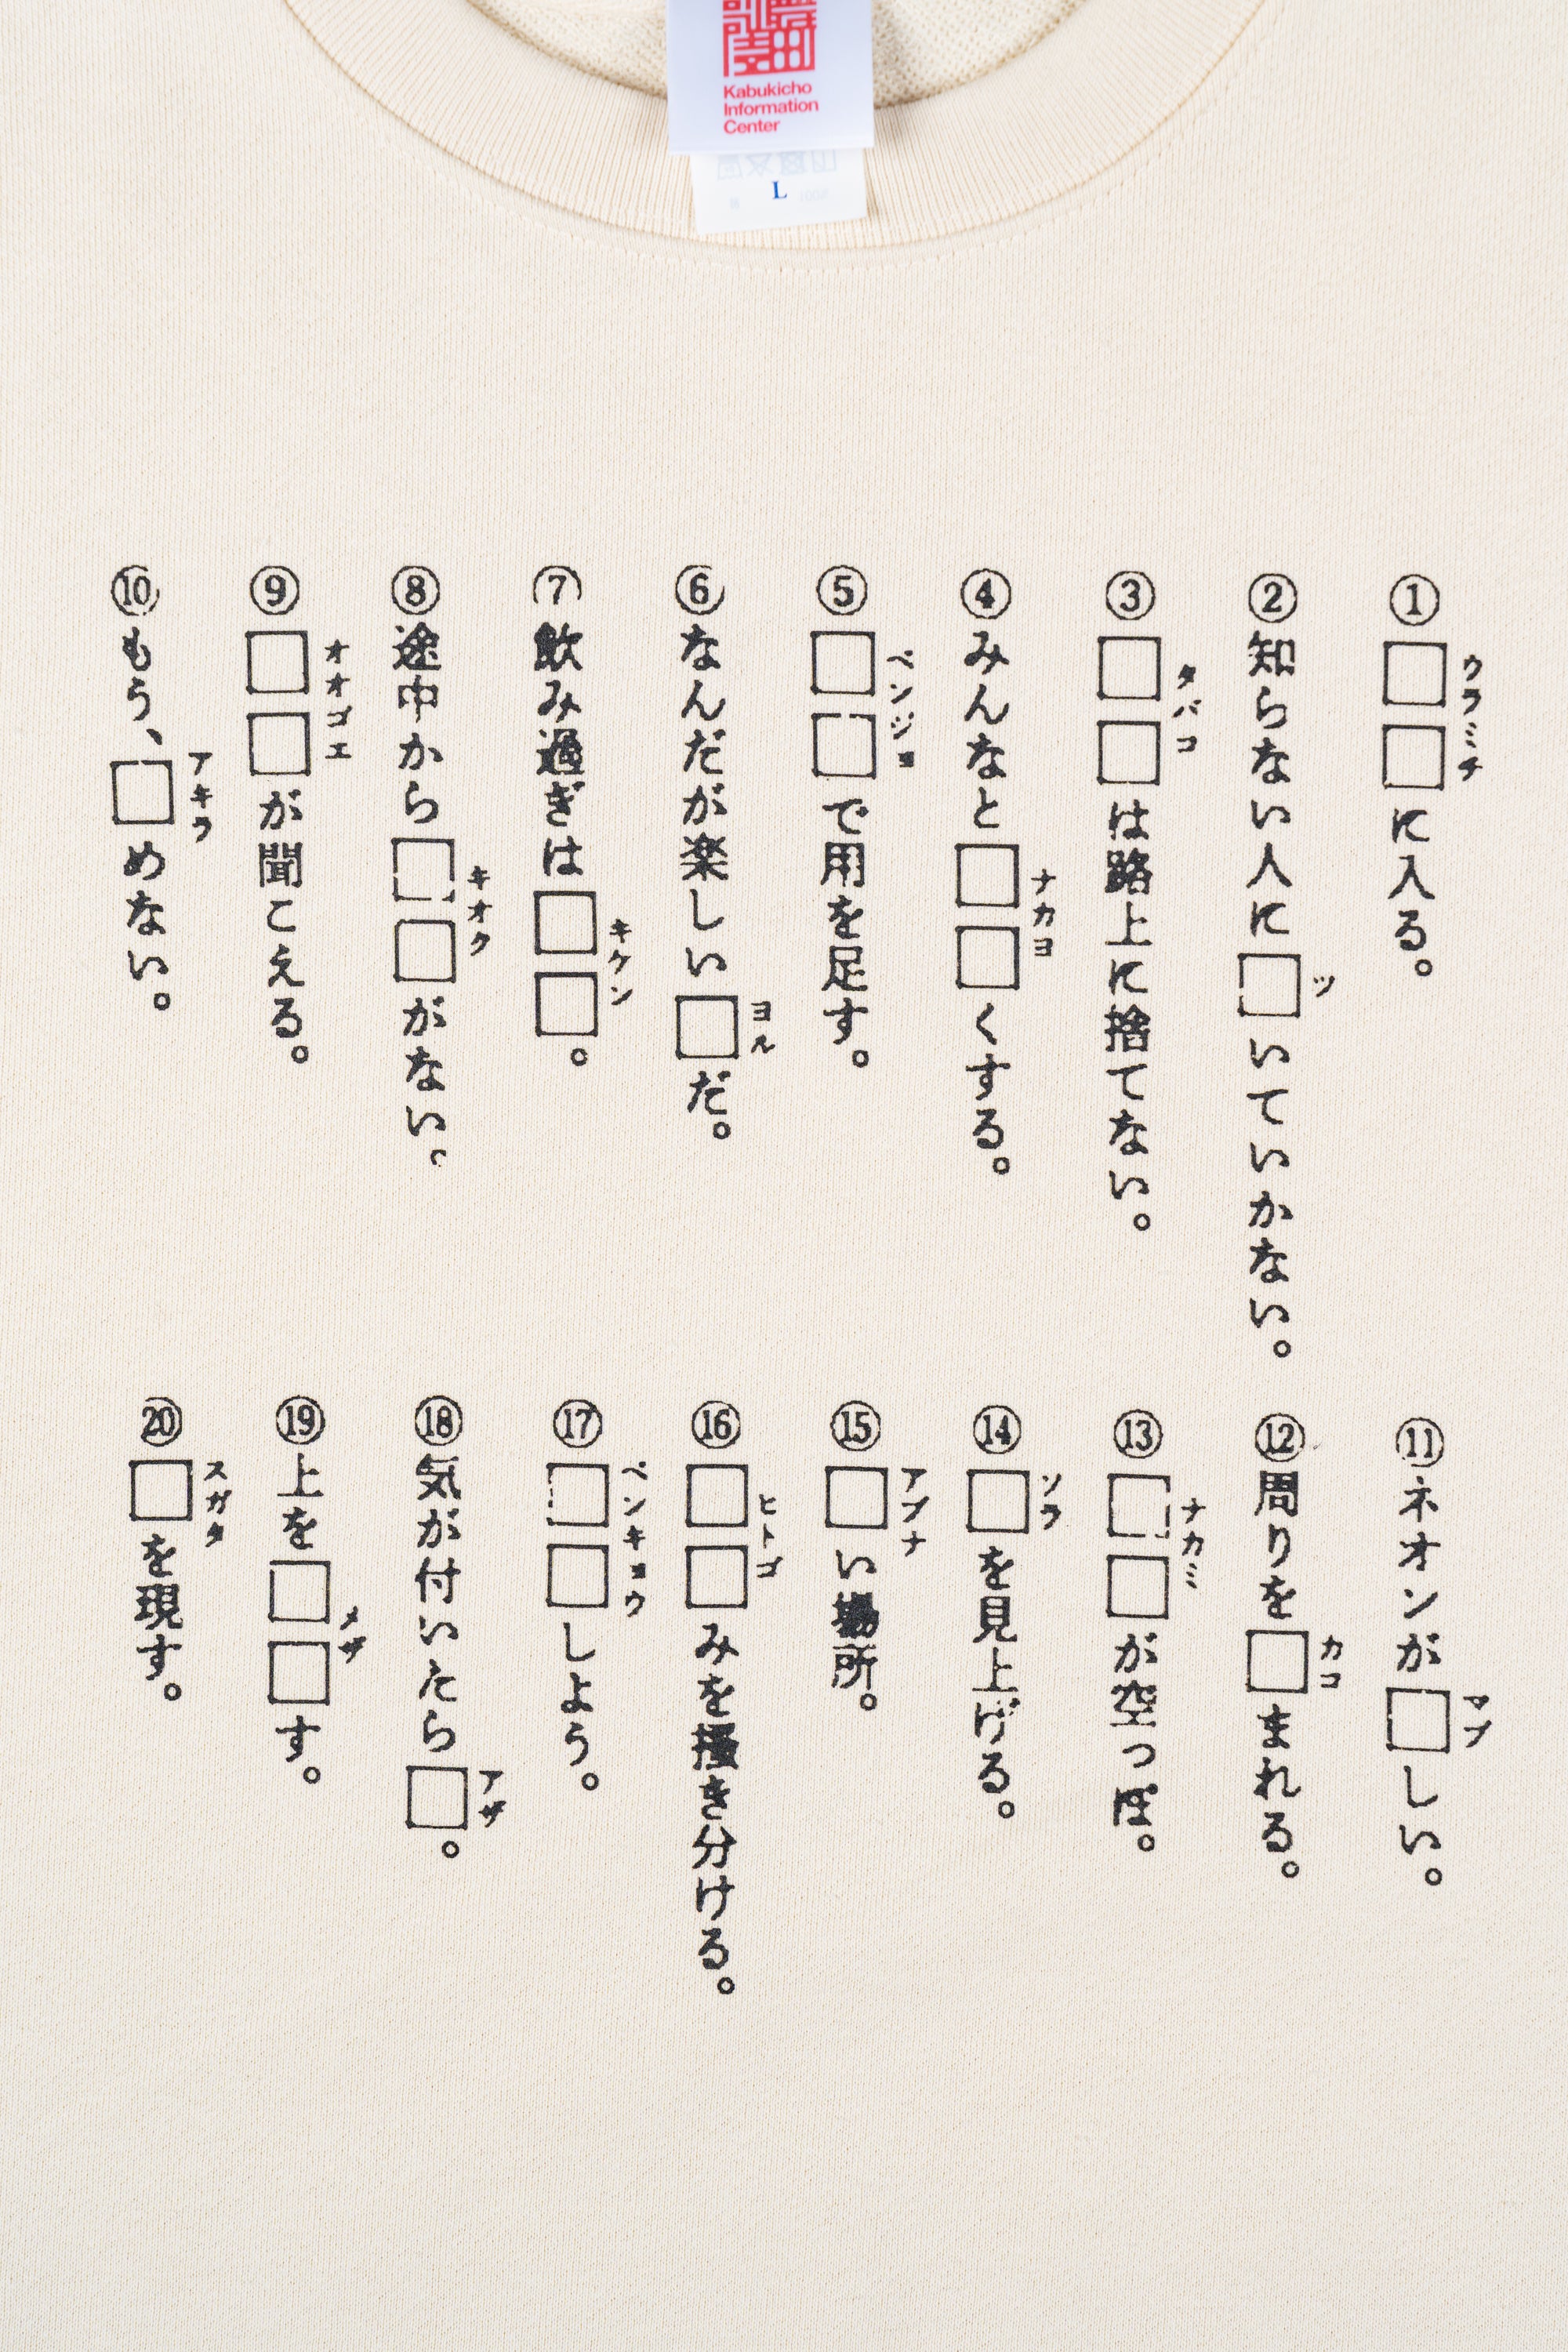 Kabukicho
Information
Center
L
① □□に入る。
ウラミチ
② 知らない人に□いていかない。
ツ
③ □□は路上に捨てない。
タバコ
④ みんなと□□くする。
ナカヨ
⑤ □□で用を足す。
ベンジョ
⑥ なんだが楽しい□だ。
ヨル
⑦ 飲み過ぎは□□。
キケン
⑧ 途中から□□がない。
キオク
⑨ □□が聞こえる。
オオゴエ
⑩ もう、□めない。
アキラ
⑪ ネオンが□しい。
マブ
⑫ 周りを□まれる。
カコ
⑬ □□が空っぽ。
ナカミ
⑭ □を見上げる。
ソラ
⑮ □い場所。
アブナ
⑯ □□みを描き分ける。
ヒトゴ
⑰ □□しよう。
ベンキョウ
⑱ 気が付いたら□。
アザ
⑲ 上を□□す。
メザ
⑳ □を現す。
スガタ